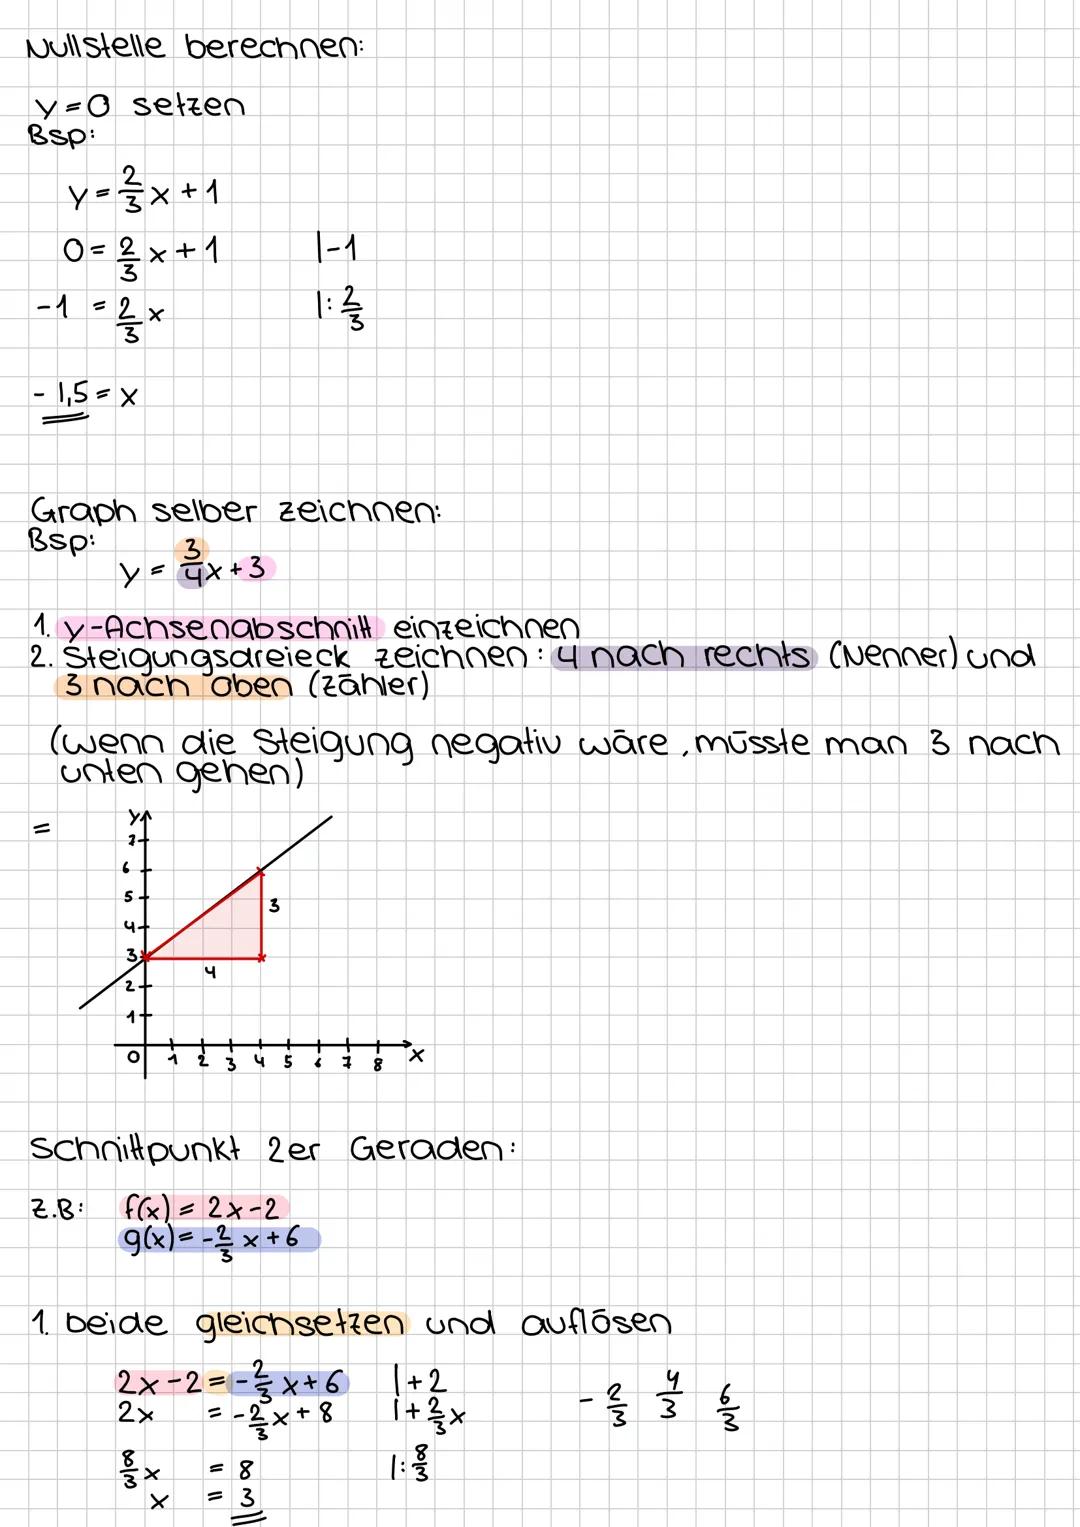 Nullstelle berechnen:
y=0 setzen
Bsp:
y = 2/3 x + 1
0 = 2/3 x + 1 |-1
-1 = 2/3 x |: 2/3
- 1,5 = x
Graph selber zeichnen:
Bsp:
y = 3/4 x + 3
1. y-Achsenabschnitt einzeichnen
2. Steigungsdreieck zeichnen: 4 nach rechts (Nenner) und
3 nach oben (Zähler)
(wenn die Steigung negativ wäre, müsste man 3 nach
unten gehen)
=
y
7
6
5
4
3
2
1
3
4
0 1 2 3 4 5 6 7 8 x
Schnittpunkt 2er Geraden:
z.B: f(x) = 2x-2
g(x) = -2/3 x + 6
1. beide gleichsetzen und auflösen
2x-2 = -2/3 x + 6 |+2 - 2/3 4/3 6/3
2x = -2/3 x + 8 |+ 2/3 x
8/3 x = 8 |: 8/3
x = 3